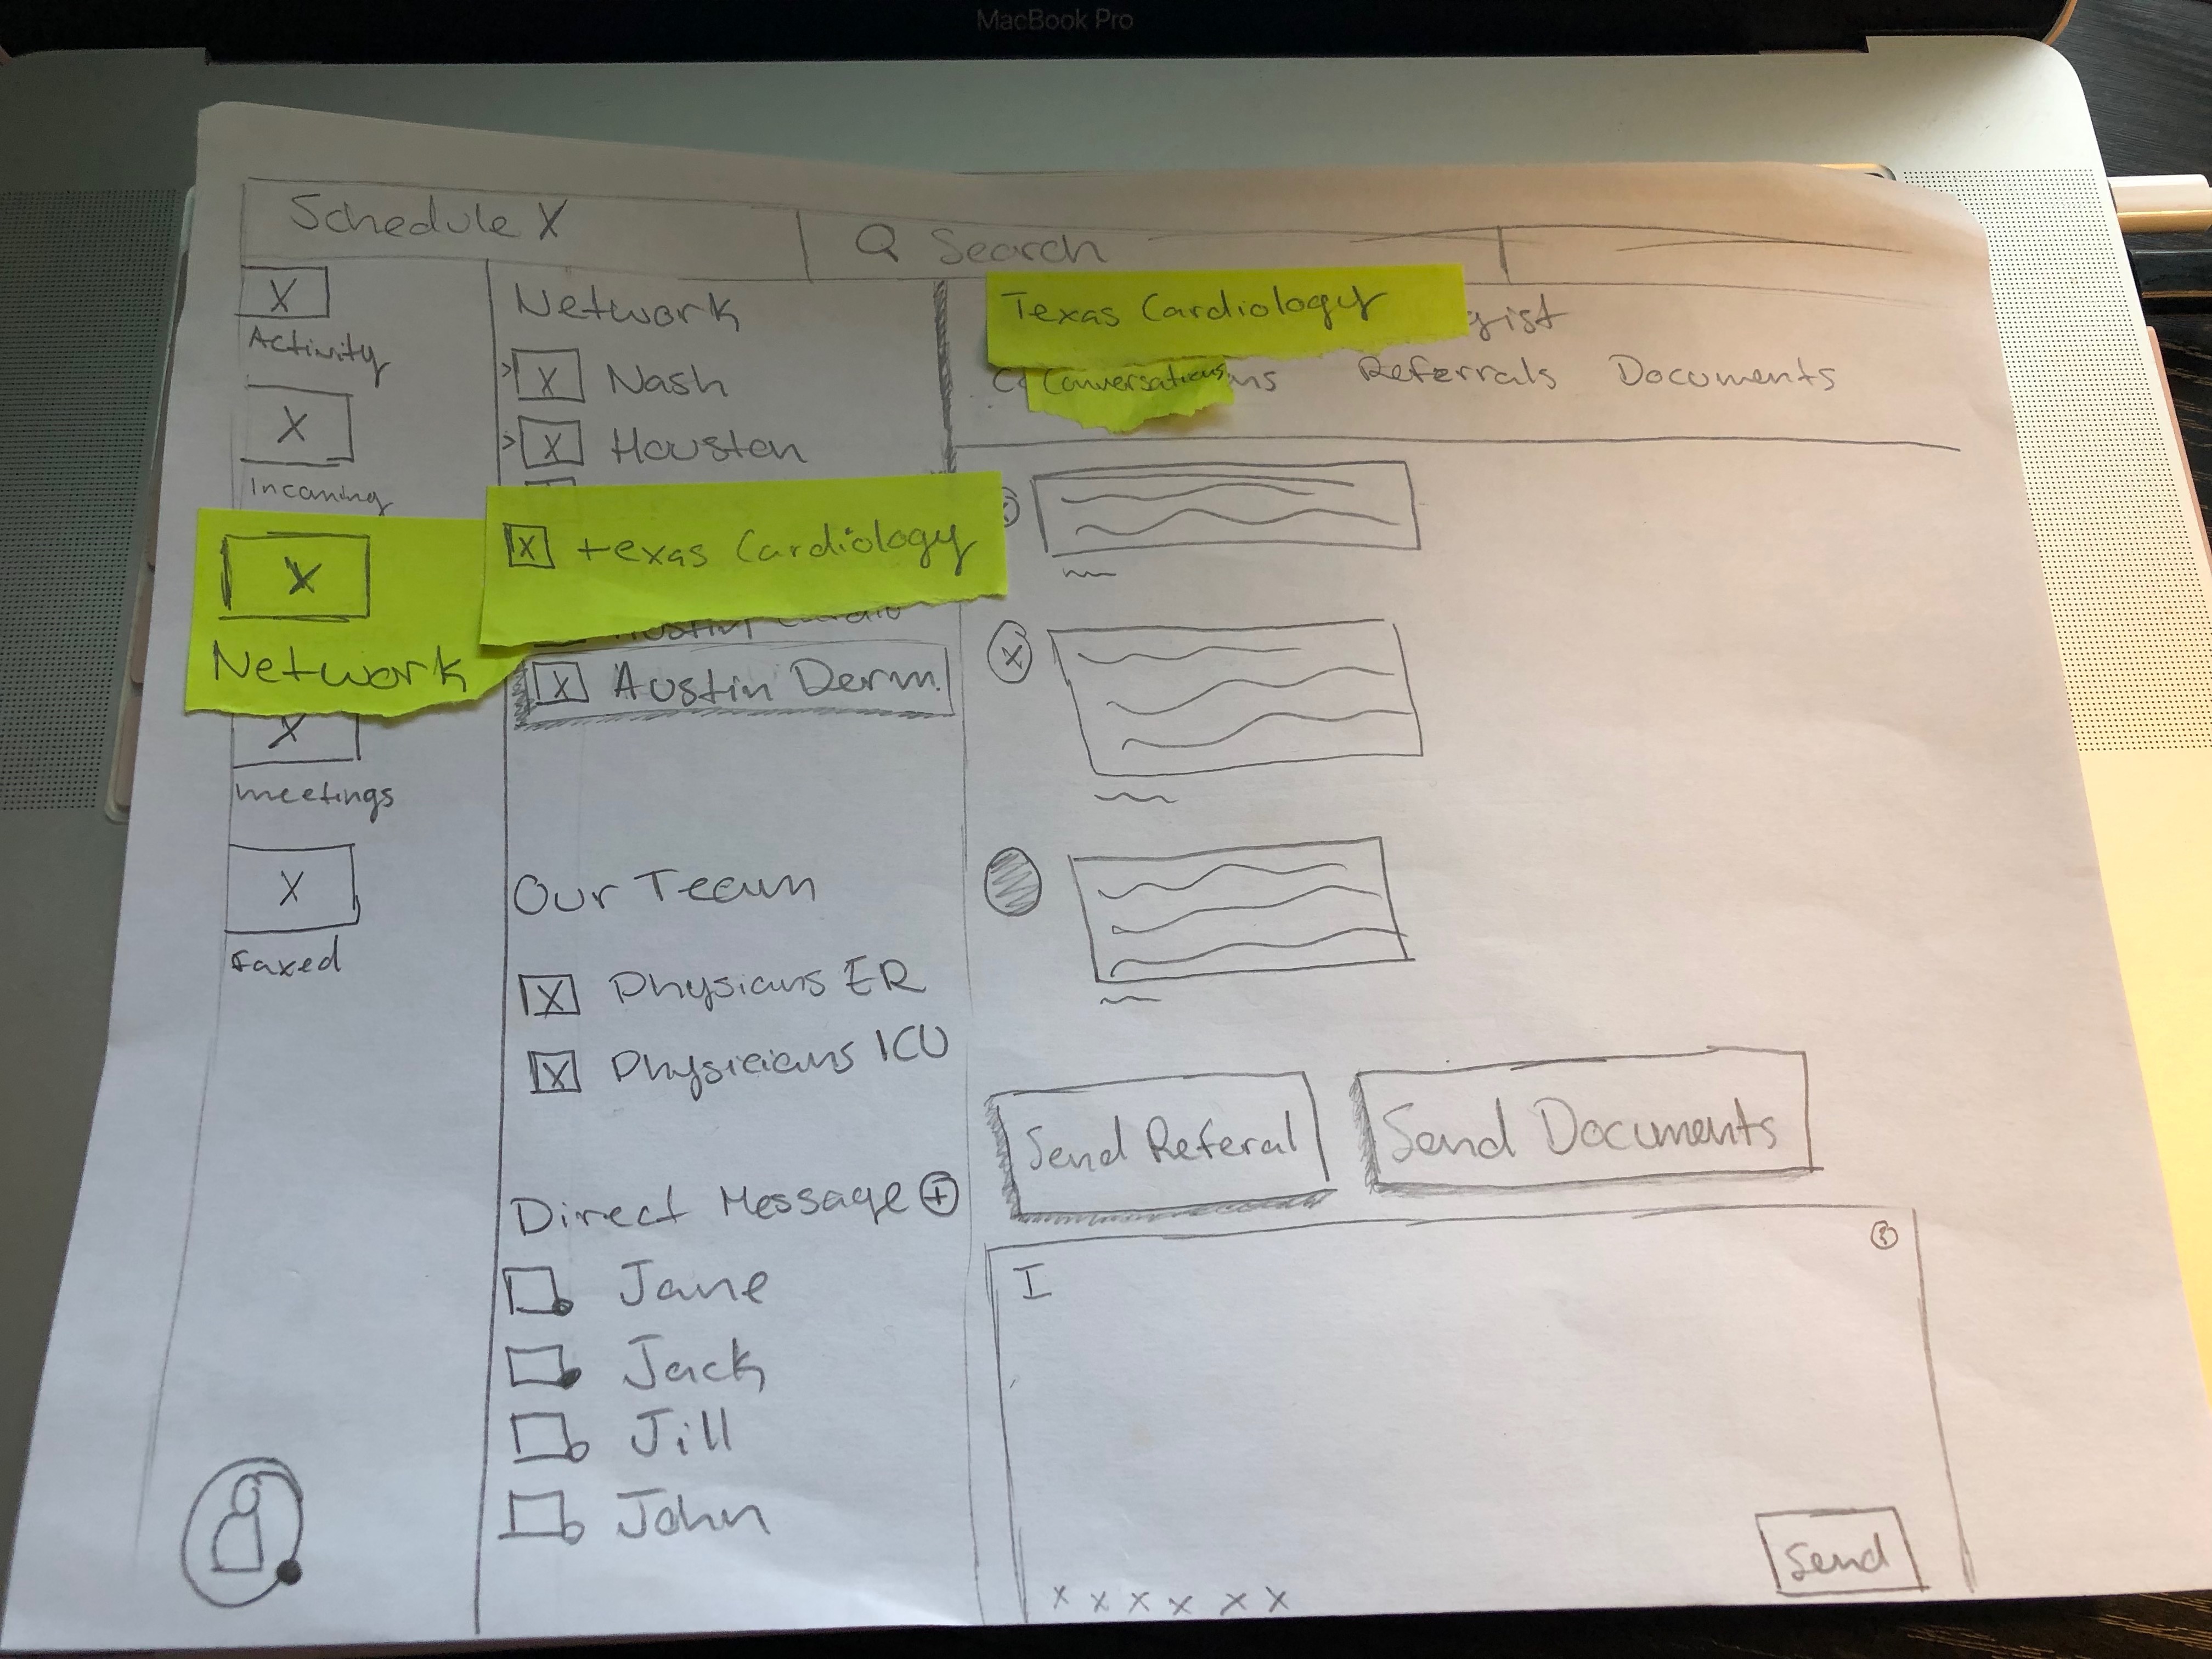 MacBook Pro
Schedule X
Search
X
Activity
X
Incoming
X
Network
X
meetings
X
Faxed
Network
> X Nash
> X Houston
X texas Cardiology
X Austin Derm.
Our Team
X Physicians ER
X Physicians ICU
Direct Message +
Jane
Jack
Jill
John
Texas Cardiology gist
Conversations ns Referrals Documents
X
Send Referal
Send Documents
I
x x x x x x
Send